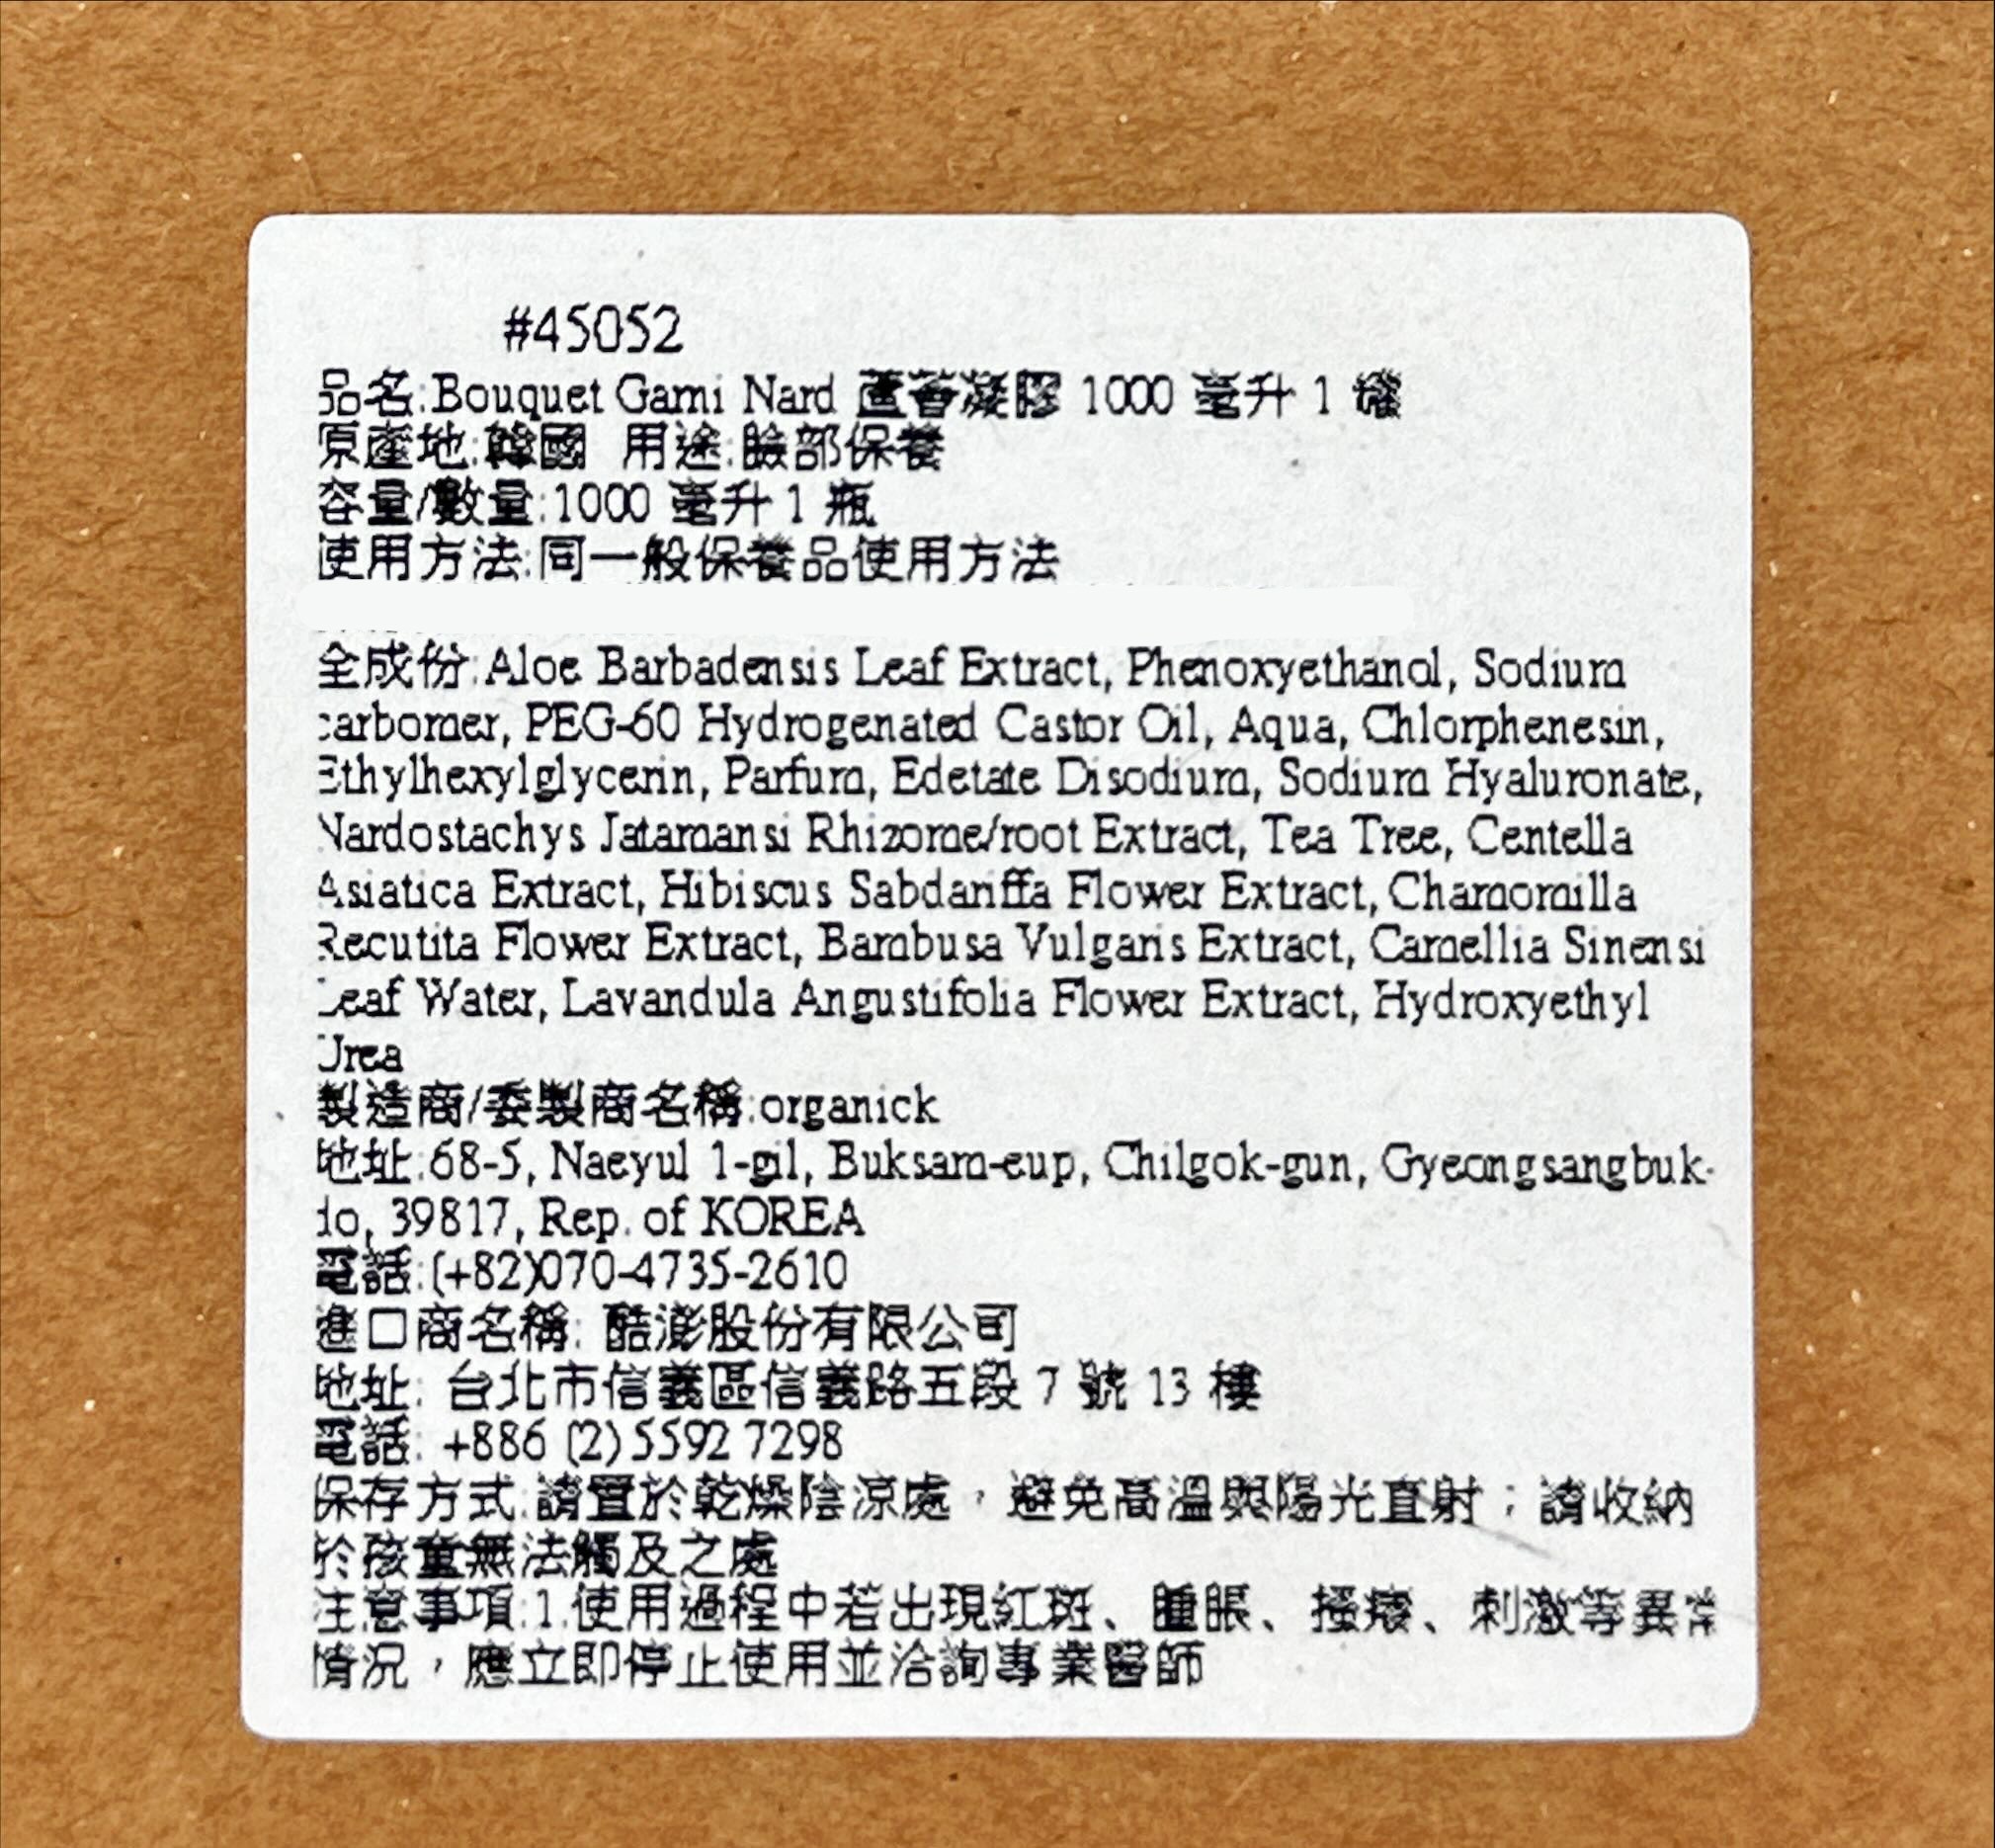 #45052
品名:Bouquet Gami Nard 蘆薈凝膠 1000 毫升 1 罐
原產地:韓國 用途:臉部保養
容量/數量:1000 毫升 1 瓶
使用方法:同一般保養品使用方法
全成份:Aloe Barbadensis Leaf Extract, Phenoxyethanol, Sodium
carbomer, PEG-60 Hydrogenated Castor Oil, Aqua, Chlorphenesin,
Ethylhexylglycerin, Parfum, Edetate Disodium, Sodium Hyaluronate,
Nardostachys Jatamansi Rhizome/root Extract, Tea Tree, Centella
Asiatica Extract, Hibiscus Sabdariffa Flower Extract, Chamomilla
Recutita Flower Extract, Bambusa Vulgaris Extract, Camellia Sinensi
Leaf Water, Lavandula Angustifolia Flower Extract, Hydroxyethyl
Urea
製造商/委製商名稱:organick
地址:68-5, Naeyul 1-gil, Buksam-eup, Chilgok-gun, Gyeongsangbuk-
do, 39817, Rep. of KOREA
電話:(+82)070-4735-2610
進口商名稱: 酷澎股份有限公司
地址: 台北市信義區信義路五段 7 號 13 樓
電話: +886 (2) 5592 7298
保存方式:請置於乾燥陰涼處，避免高溫與陽光直射；請收納
於孩童無法觸及之處
注意事項:1.使用過程中若出現紅斑、腫脹、搔癢、刺激等異常
情況，應立即停止使用並洽詢專業醫師